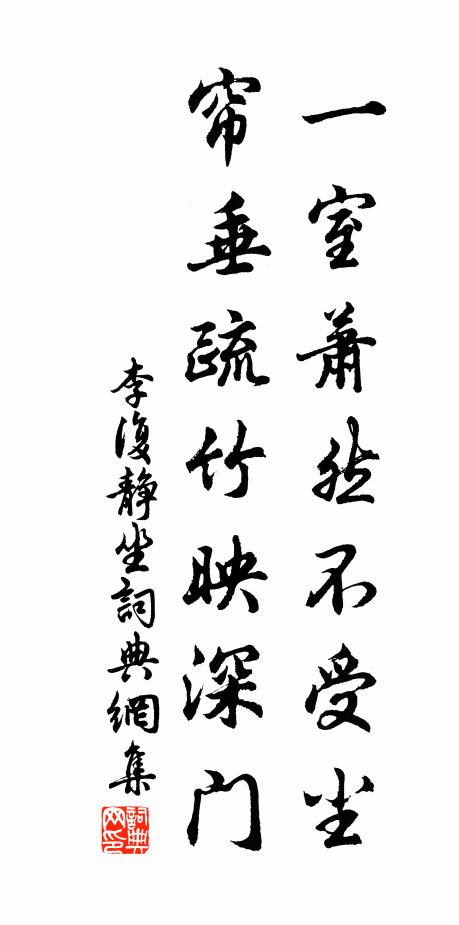 一室蕭然不受尘
帘垂疏竹映深门
李復静坐詞典網集
詞典网印